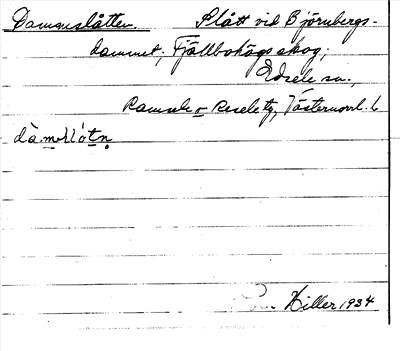 Dammslåtten. Slått vid Björnbergs-
dammet, Fjällbohögs skog,
Edsele sn.,
Ramsele o Resele tg, Västernorrl. l
Hiller 1934